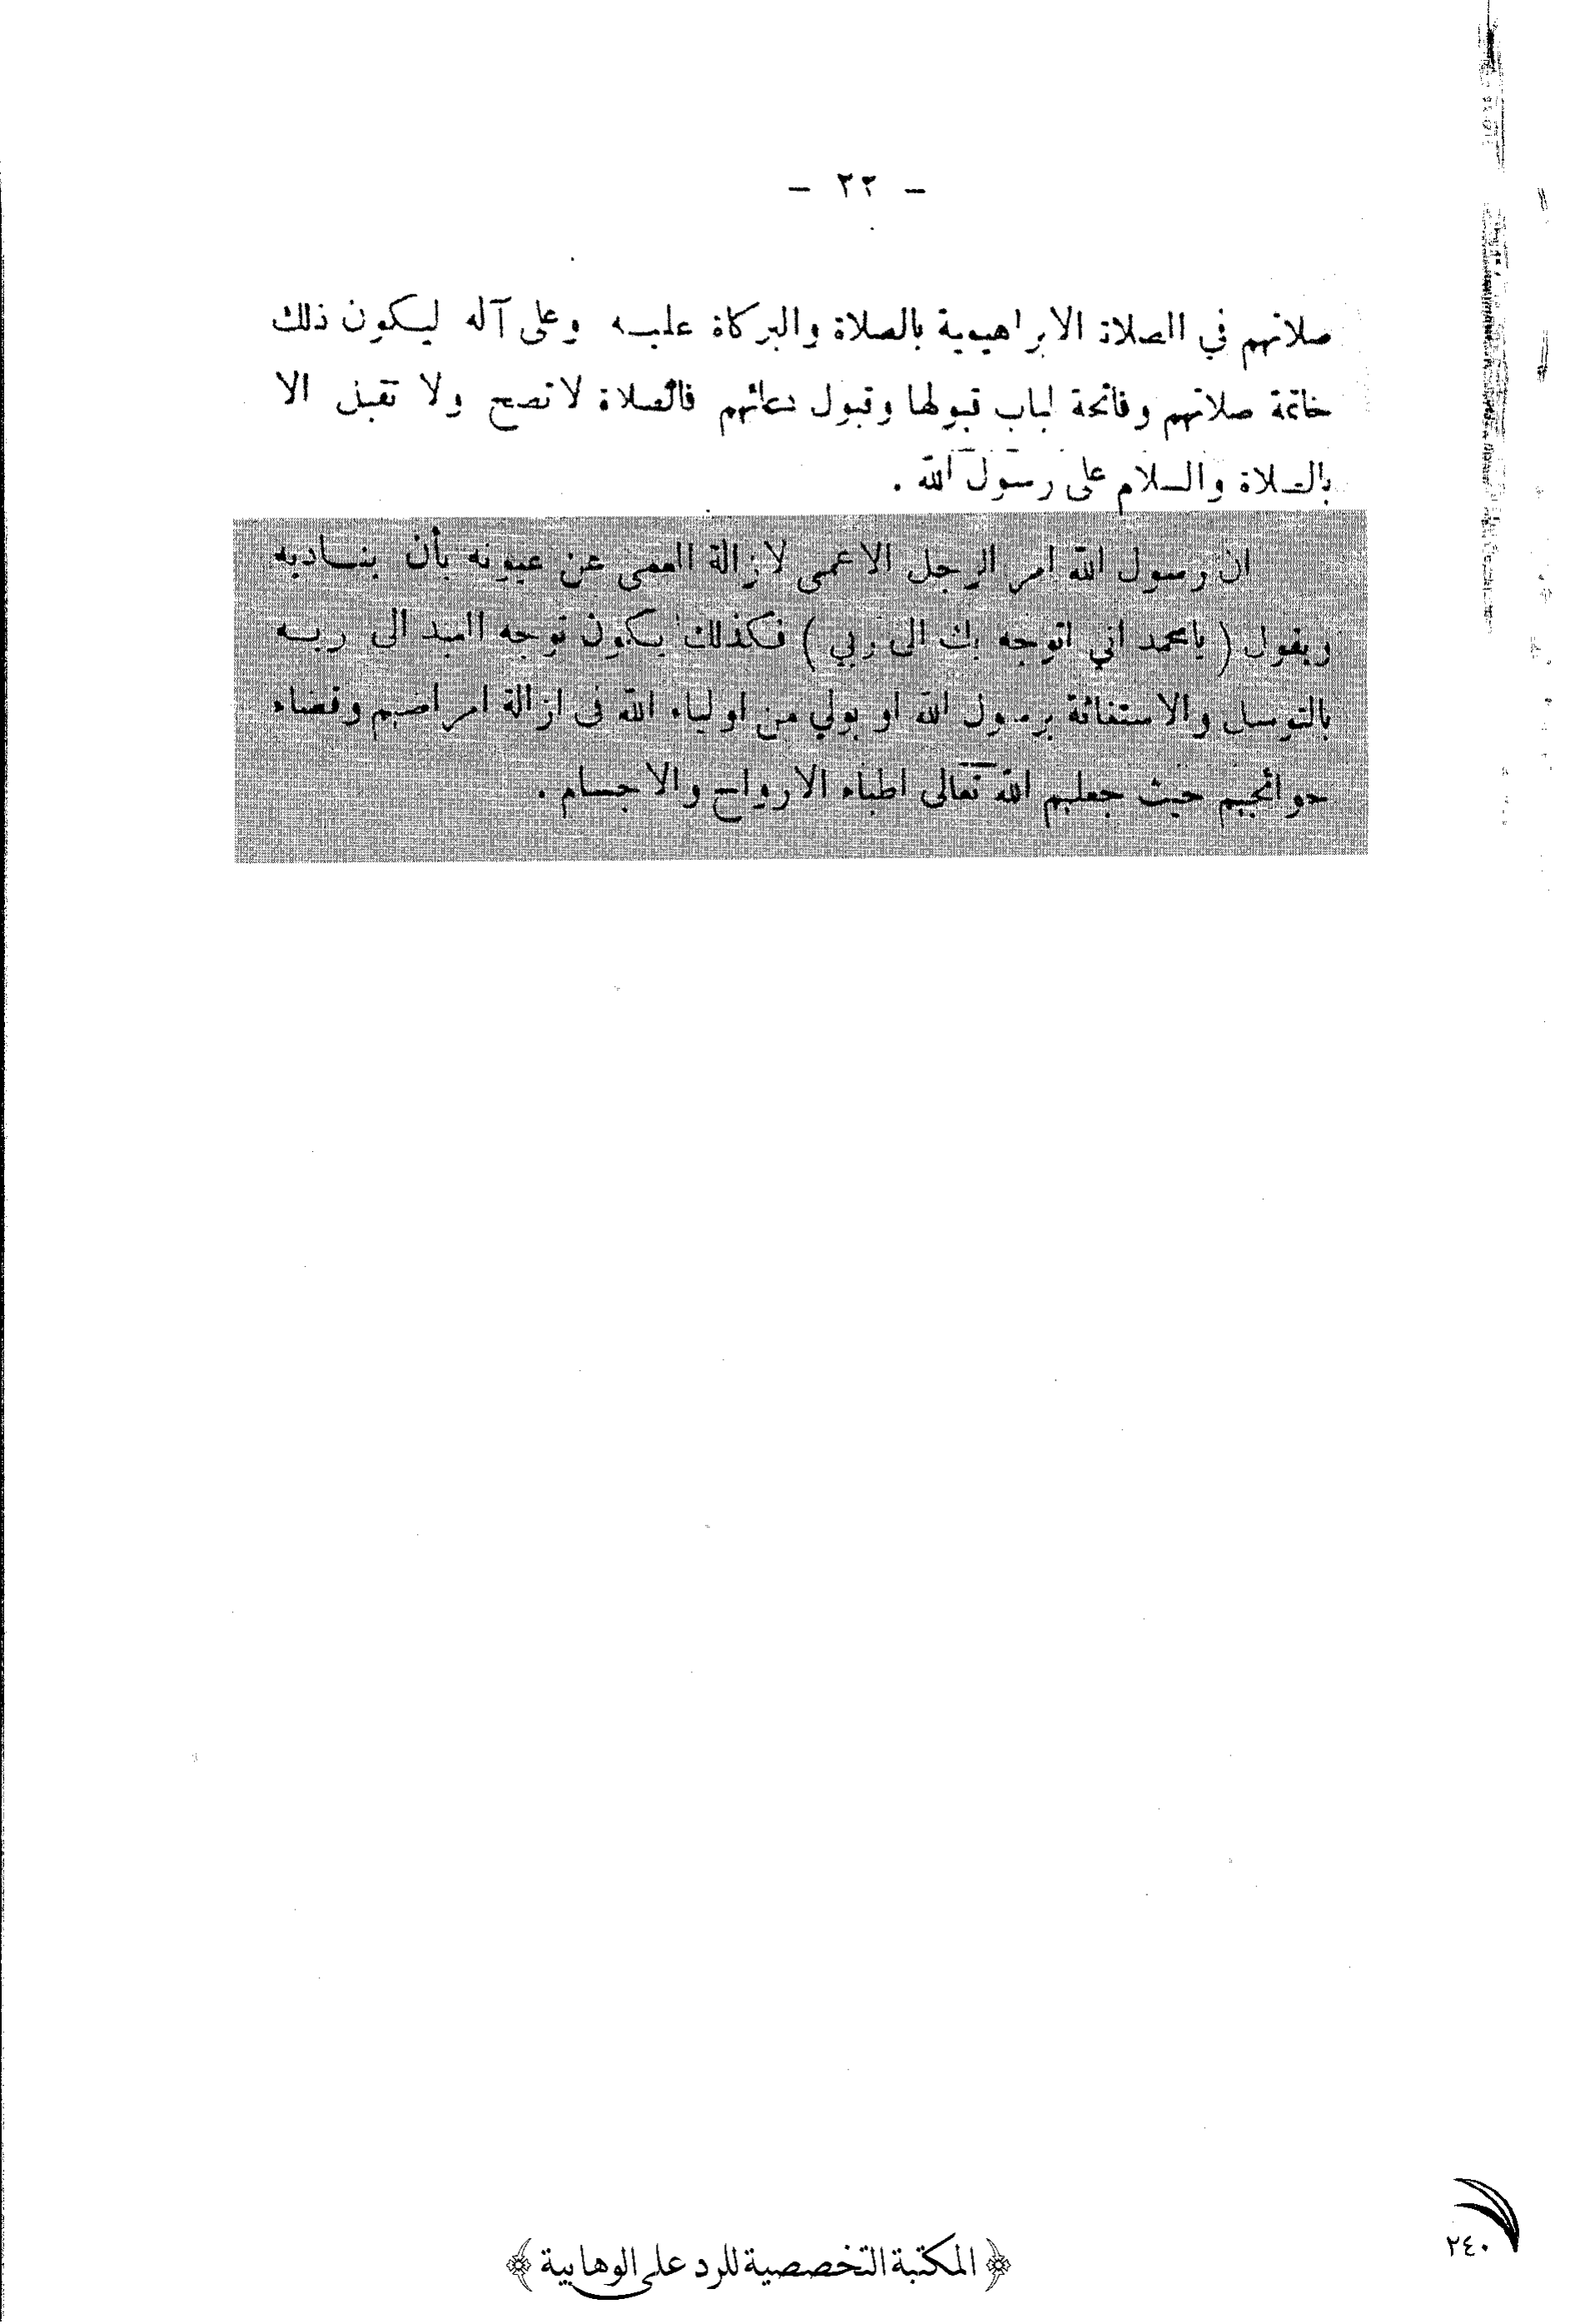 - ٢٢ -
صلاتهم في الصلاة الابراهيمية بالصلاة والبركاة عليه وعلى آله ليكون ذلك
خاتمة صلاتهم وفاتحة لباب قبولها وقبول دعائهم فالصلاة لا تصح ولا تقبل الا
بالصلاة والسلام على رسول الله .
ان رسول الله امر الرجل الاعمى لازالة العمى عن عيونه بأن يناديه
ويقول ( يا محمد اني اتوجه بك الى ربي ) فكذلك يكون توجه العبد الى ربه
بالتوسل والاستغاثة برسول الله او بولي من اولياء الله في ازالة امراضهم وقضاء
حوائجهم حيث جعلهم الله تعالى اطباء الارواح والاجسام .
٢٤٠
﴿ المكتبة التخصصية للرد على الوهابية ﴾